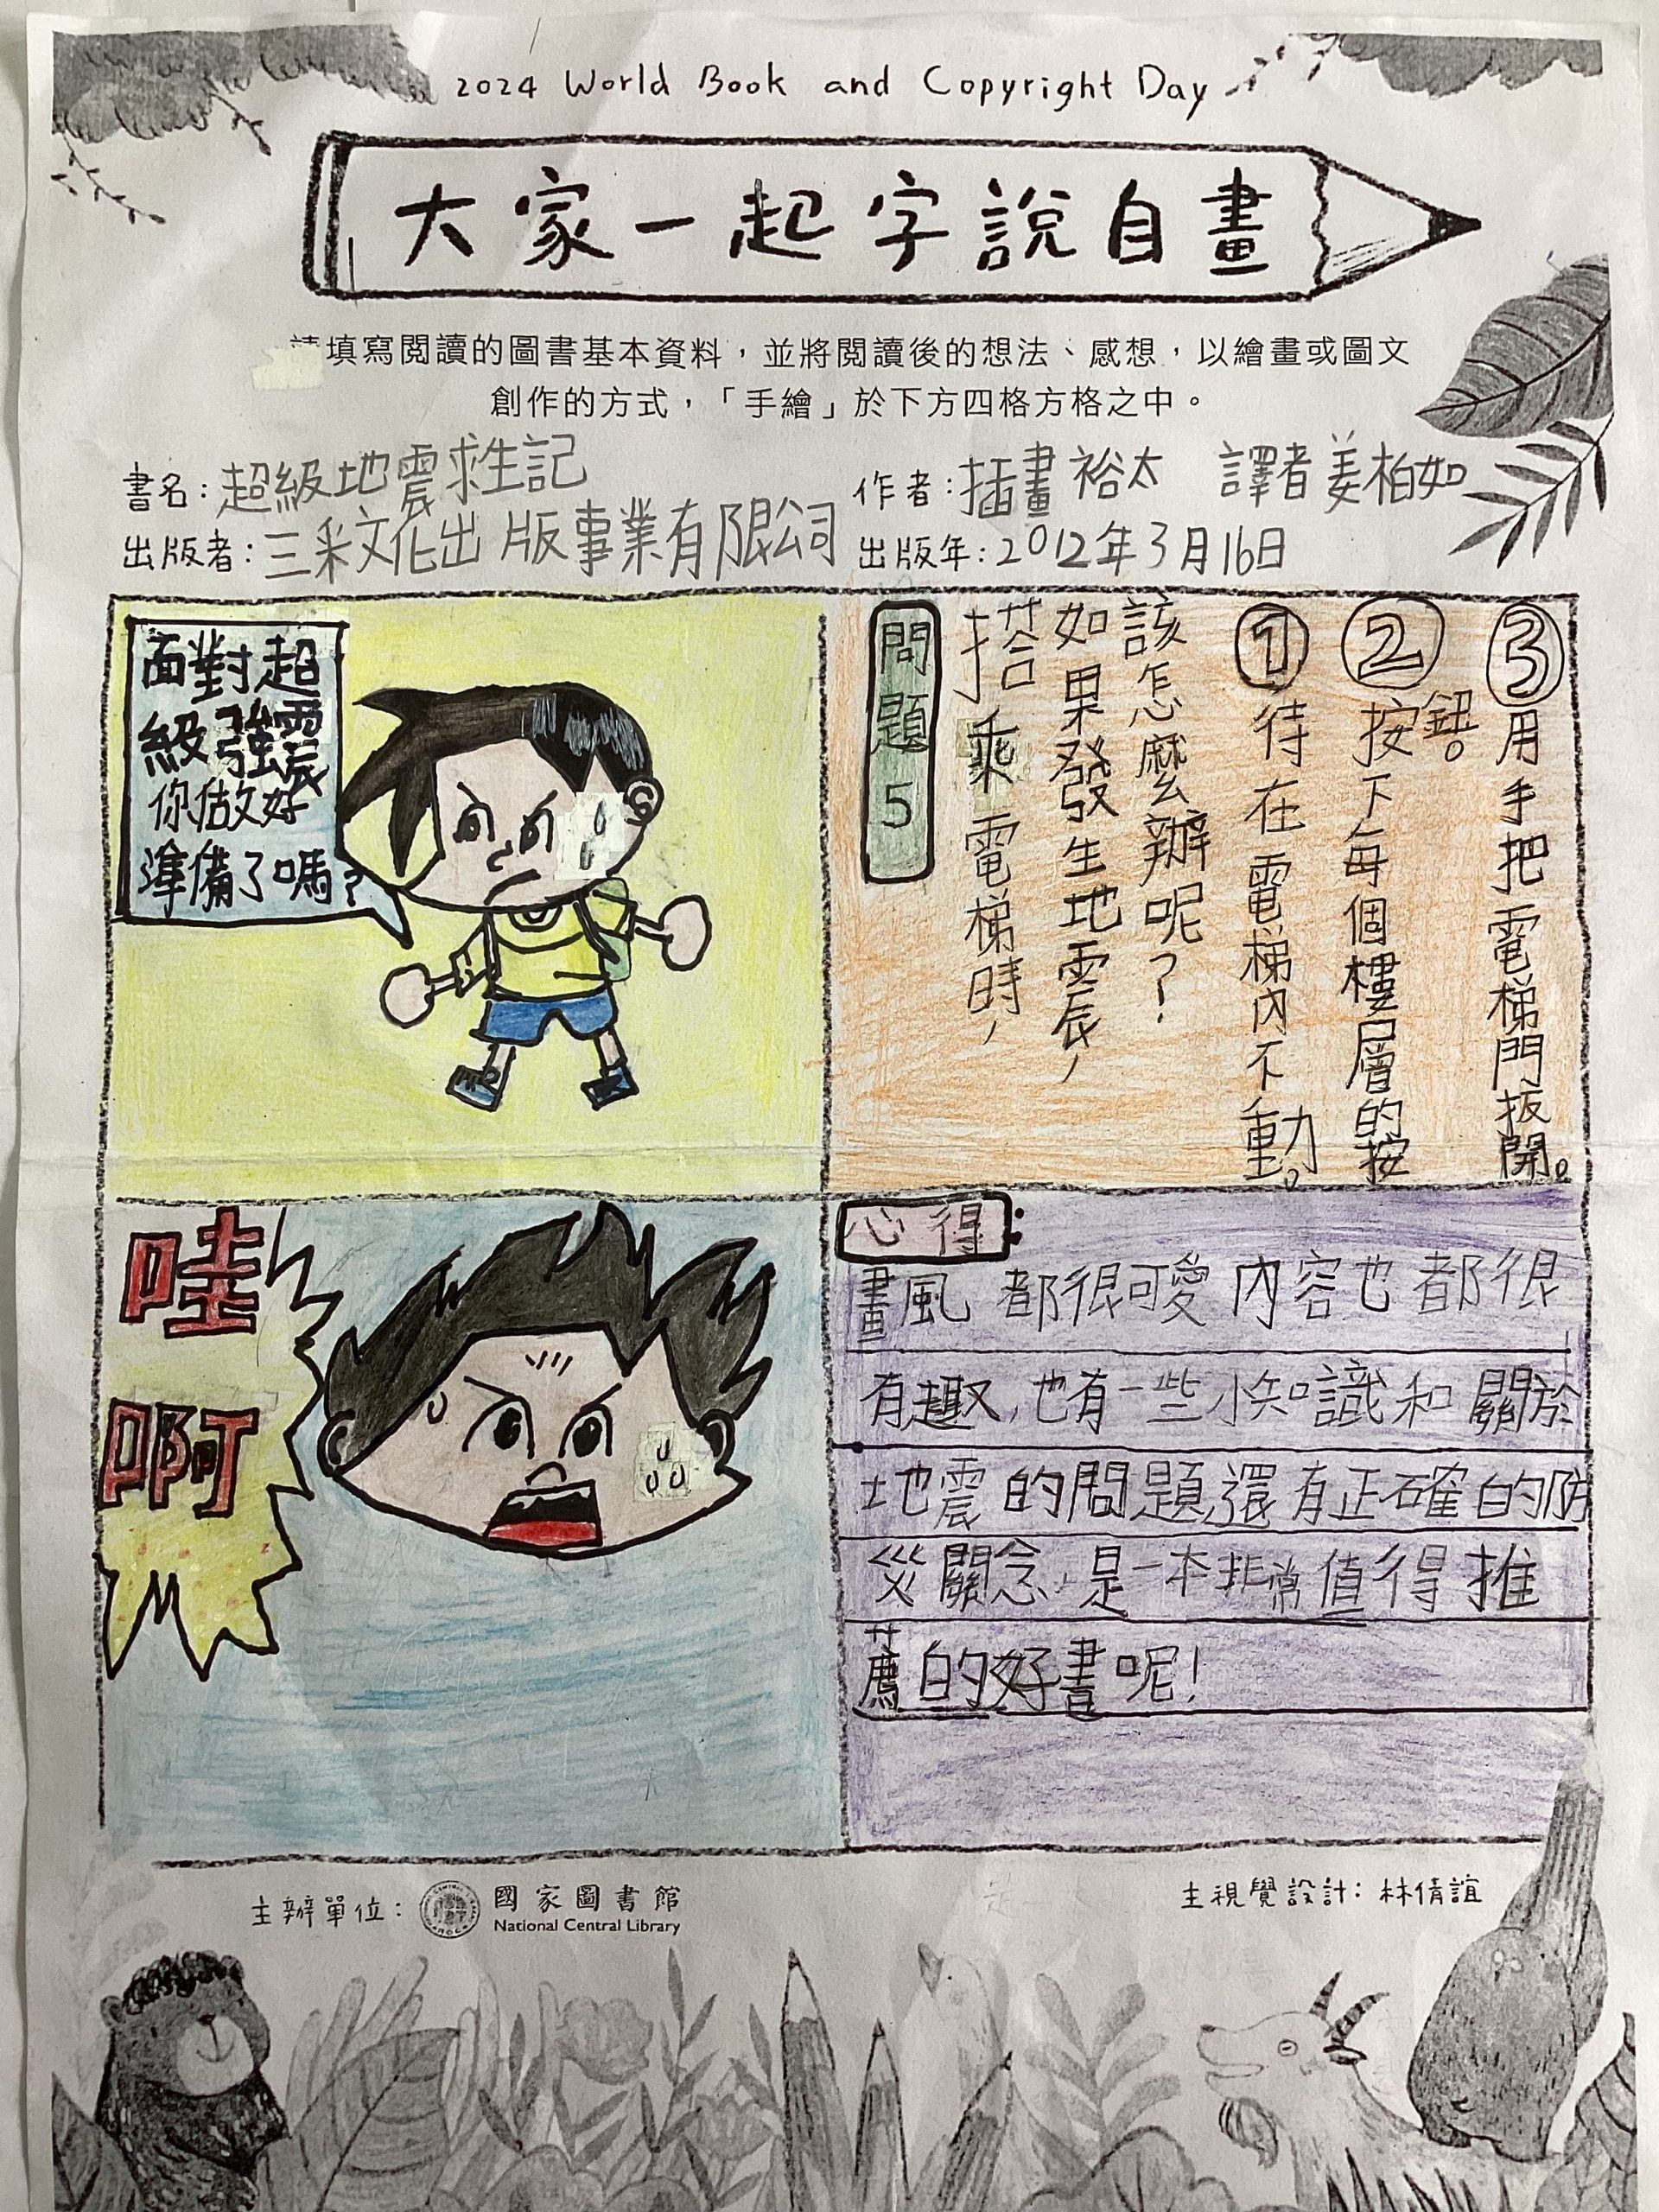 2024 World Book and Copyright Day
大家一起字說自畫
請填寫閱讀的圖書基本資料，並將閱讀後的想法、感想，以繪畫或圖文
創作的方式，「手繪」於下方四格方格之中。
書名：超級地震求生記
作者：插畫 裕太 譯者姜柏如
出版者：三采文化出版事業有限公司
出版年：2012年3月16日
面對超
級強震
你做好
準備了嗎？
問題5
搭乘電梯時，
如果發生地震，
該怎麼辦呢？
①待在電梯內不動。
②按下每個樓層的按
鈕。
③用手把電梯門扳開。
哇
啊
心得：
畫風都很可愛內容也都很
有趣，也有一些小知識和關於
地震的問題還有正確的防
災關念，是一本非常值得推
薦的好書呢！
主辦單位：國家圖書館
National Central Library
主視覺設計：林倩誼